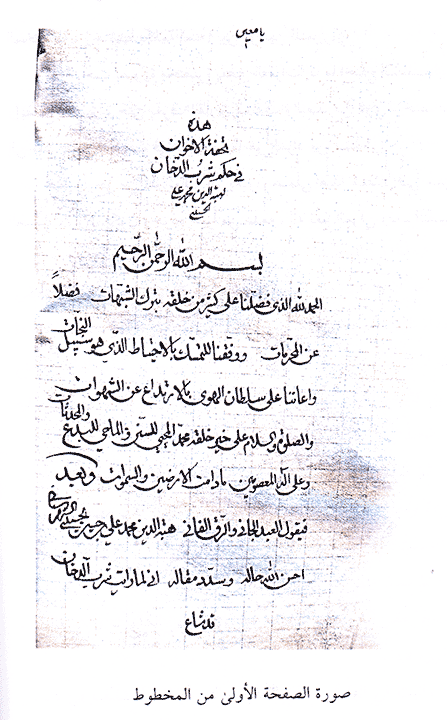 يا معين
هذه
تحفة الاخوان
في حكم شرب الدخان
لهبة الدين محمد علي
الحسيني
بسم الله الرحمن الرحيم
الحمد لله الذي فضلنا على كثير من خلقه بترك الشبهات فضلاً
عن المحرمات ووفقنا للتمسك بالاحتياط الذي هو سبيل النجات
واعاننا على سلطان الهوى بالارتداع عن الشهوات
والصلوة والسلام على خير خلقه محمد المحيي للسنن والماحي للبدع والمحدثات
وعلى آله المعصومين ما دامت الارضين والسموات وبعد
فيقول العبد الجاني والرق الفاني هبة الدين محمد علي بن حسين الحسيني
احسن الله حاله وسدد مقاله اني لما رايت شرب الدخان
قد شاع
صورة الصفحة الأولى من المخطوط